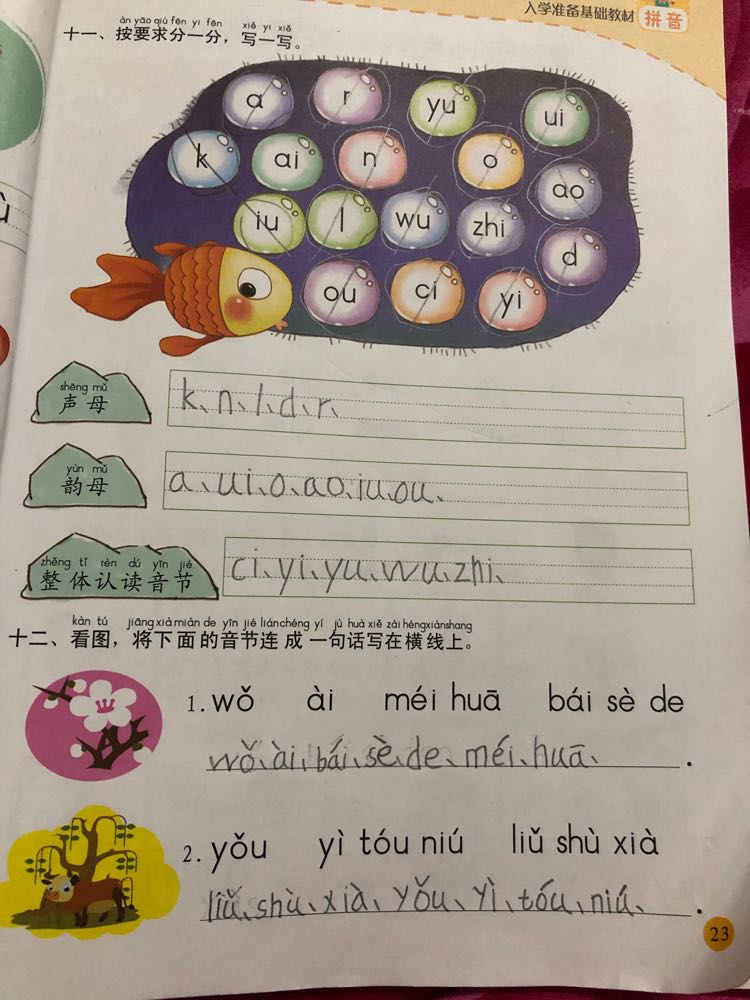 入学准备基础教材 拼音
àn yāo qiú fēn yi fēn xiě yi xiě
十一、按要求分一分，写一写。
a r yu ui
k ai n o ao
iu l wu zhi d
ou ci yi
shēng mǔ
声母
k、n、l、d、r、
yùn mǔ
韵母
a、ui、o、ao、iu、ou、
zhěng tǐ rèn dú yīn jié
整体认读音节
ci、yi、yu、wu、zhi、
kàn tú jiāng xià miàn de yīn jié lián chéng yí jù huà xiě zài héng xiàn shang
十二、看图，将下面的音节连成一句话写在横线上。
1. wǒ ài méi huā bái sè de
wǒ、ài、bái、sè、de、méi、huā、.
2. yǒu yì tóu niú liǔ shù xià
liǔ、shù、xià、yǒu、yì、tóu、niú、.
23